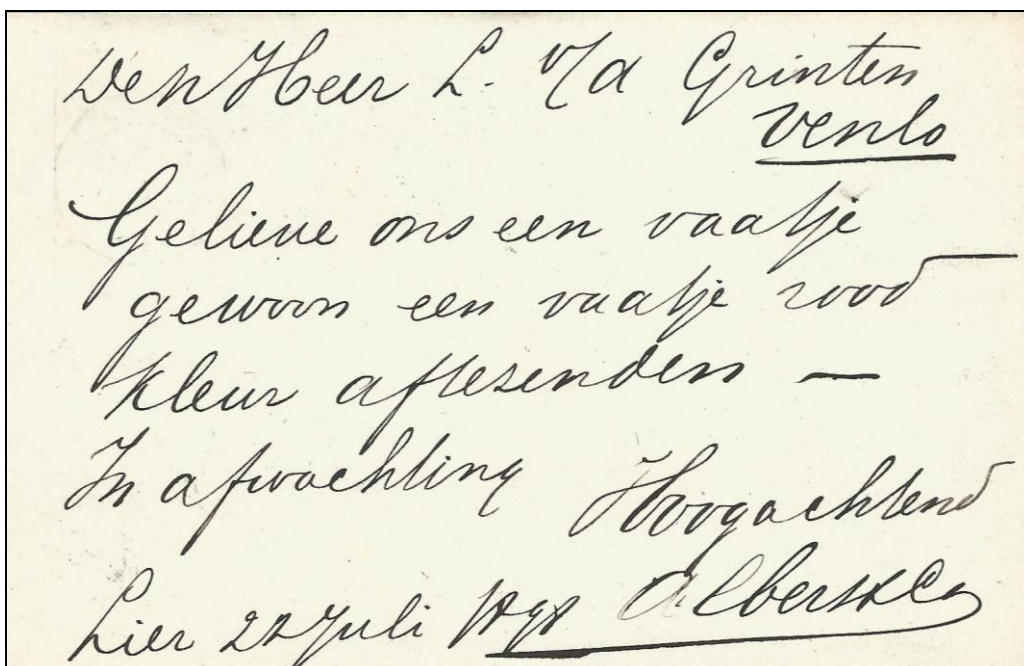 Den Heer L. v/d Grinten
Venlo
Gelieve ons een vaatje
gewoon een vaatje rood
kleur aftezenden —
In afwachting
Hoogachtend
Lier 22 Juli Albers & Co